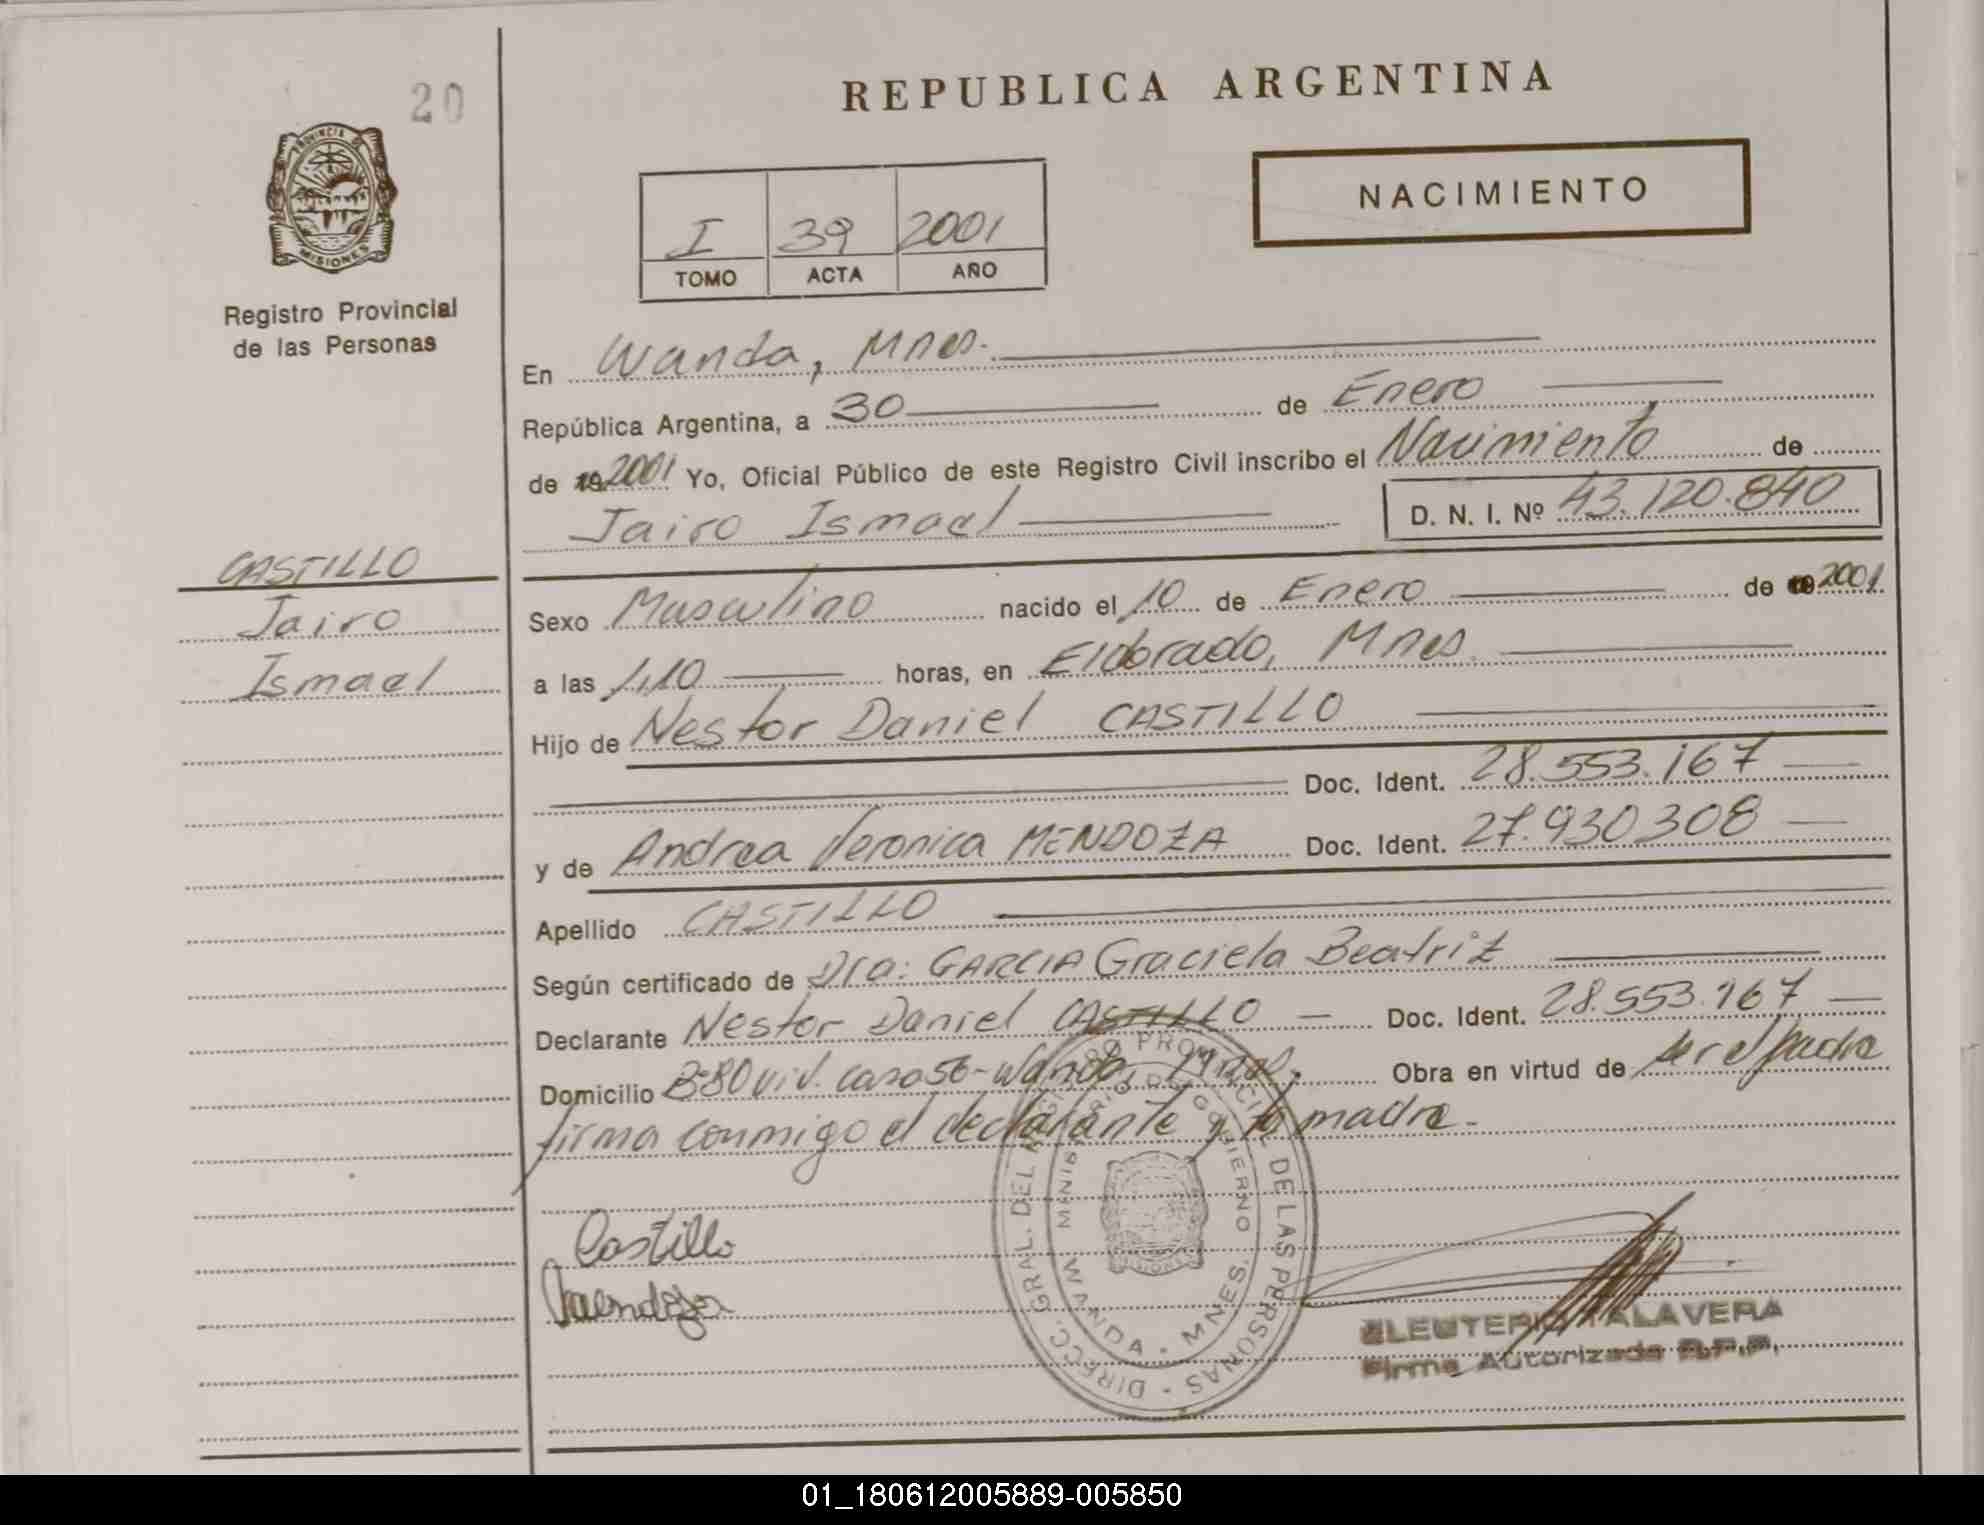 20
REPUBLICA ARGENTINA
PROVINCIA DE
MISIONES
NACIMIENTO
I 39 2001
TOMO ACTA AÑO
Registro Provincial
de las Personas
En Wanda, Mnes.
República Argentina, a 30 de Enero
de 2001 Yo, Oficial Público de este Registro Civil inscribo el Nacimiento de
Jairo Ismael D. N. I. Nº 43.120.840
CASTILLO
Jairo
Ismael
Sexo Masculino nacido el 10 de Enero de 2001
a las 1,10 horas, en Eldorado, Mnes.
Hijo de Nestor Daniel CASTILLO
Doc. Ident. 28.553.167
y de Andrea Veronica MENDOZA Doc. Ident. 27.930308
Apellido CASTILLO
Según certificado de Dra: GARCIA Graciela Beatriz
Declarante Nestor Daniel CASTILLO Doc. Ident. 28.553.167
Domicilio B-80 viv. casa 56-Wanda, Mnes. Obra en virtud de ser el padre
firma conmigo el declarante y la madre.
Castillo
Mendoza
DIRECC. GRAL. DEL REGISTRO PROVINCIAL DE LAS PERSONAS
MINISTERIO DE GOBIERNO
WANDA - MNES.
MISIONES
ELEUTERIO TALAVERA
Firma Autorizada R.P.P.
01_180612005889-005850